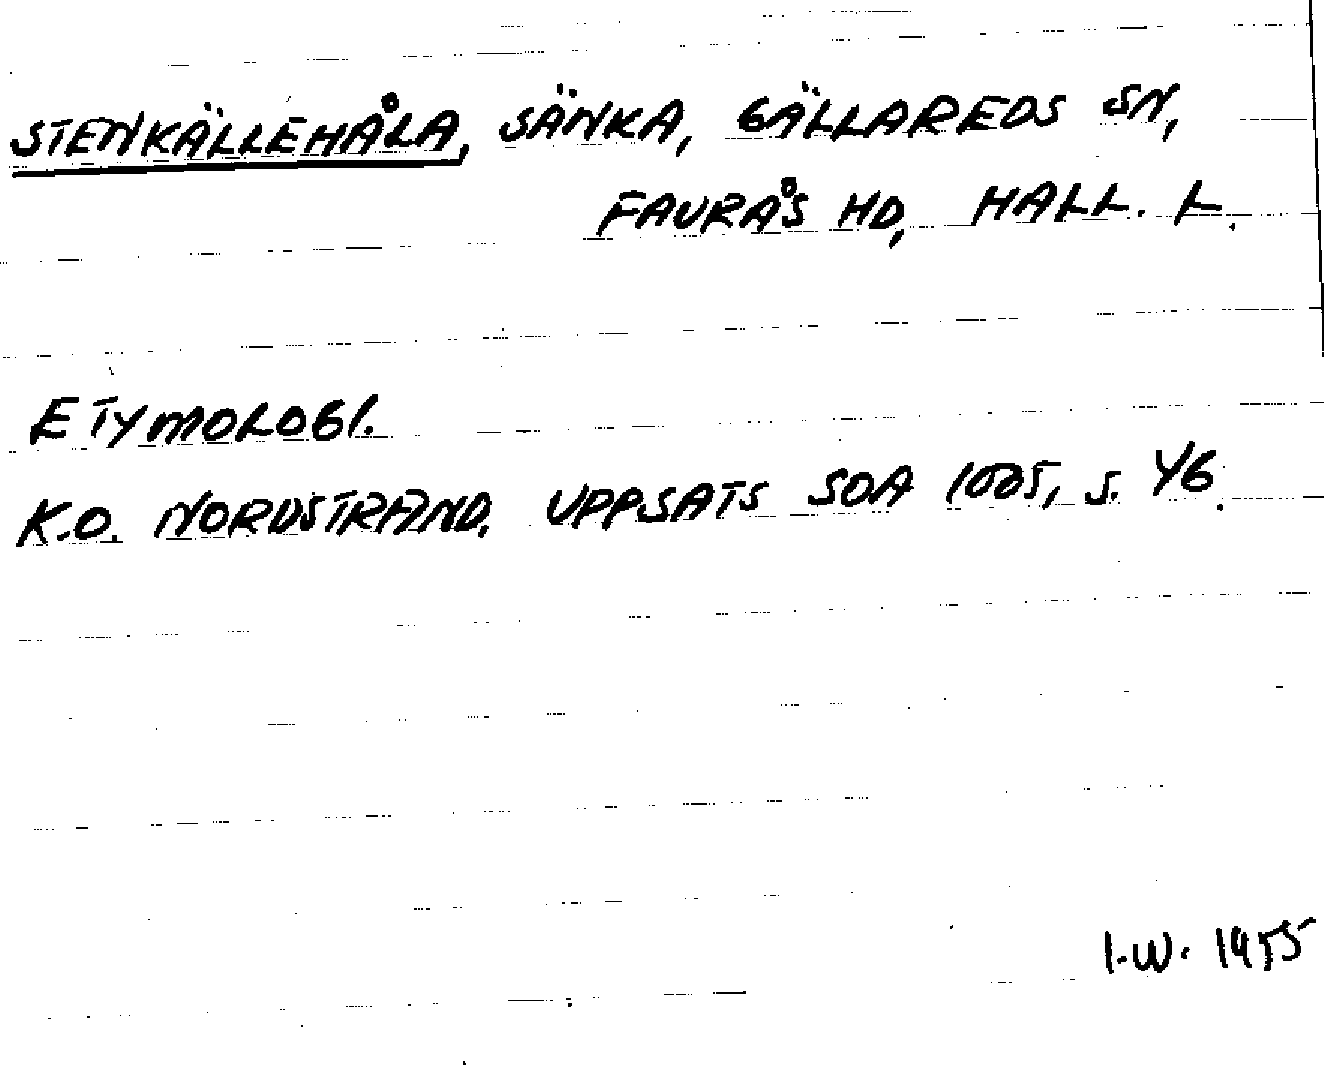 STENKÄLLEHÅLA, SÄNKA, GÄLLAREDS SN,
FAURÅS HD, HALL. L.
ETYMOLOGI.
K.O. NORDSTRAND, UPPSATS SOA 1005, S. 46.
I.W. 1955